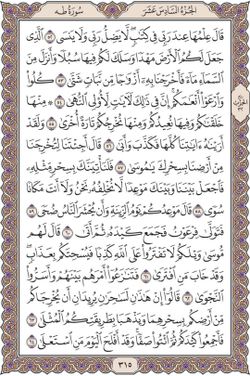 الجزء السادس عشر
سورة طه
قَالَ عِلْمُهَا عِندَ رَبِّي فِي كِتَٰبٍ لَّا يَضِلُّ رَبِّي وَلَا يَنسَى ٥٢ ٱلَّذِي
جَعَلَ لَكُمُ ٱلْأَرْضَ مَهْدًا وَسَلَكَ لَكُمْ فِيهَا سُبُلًا وَأَنزَلَ مِنَ
ٱلسَّمَآءِ مَآءً فَأَخْرَجْنَا بِهِۦٓ أَزْوَٰجًا مِّن نَّبَاتٍ شَتَّىٰ ٥٣ كُلُوا۟
وَٱرْعَوْا۟ أَنْعَٰمَكُمْ إِنَّ فِي ذَٰلِكَ لَءَايَٰتٍ لِّأُو۟لِي ٱلنُّهَىٰ ٥٤ ۞ مِنْهَا
خَلَقْنَٰكُمْ وَفِيهَا نُعِيدُكُمْ وَمِنْهَا نُخْرِجُكُمْ تَارَةً أُخْرَىٰ ٥٥ وَلَقَدْ
أَرَيْنَٰهُ ءَايَٰتِنَا كُلَّهَا فَكَذَّبَ وَأَبَىٰ ٥٦ قَالَ أَجِئْتَنَا لِتُخْرِجَنَا
مِنْ أَرْضِنَا بِسِحْرِكَ يَٰمُوسَىٰ ٥٧ فَلَنَأْتِيَنَّكَ بِسِحْرٍ مِّثْلِهِۦ
فَٱجْعَلْ بَيْنَنَا وَبَيْنَكَ مَوْعِدًا لَّا نُخْلِفُهُۥ نَحْنُ وَلَآ أَنتَ مَكَانًا
سُوًى ٥٨ قَالَ مَوْعِدُكُمْ يَوْمُ ٱلزِّينَةِ وَأَن يُحْشَرَ ٱلنَّاسُ ضُحًى ٥٩
فَتَوَلَّىٰ فِرْعَوْنُ فَجَمَعَ كَيْدَهُۥ ثُمَّ أَتَىٰ ٦٠ قَالَ لَهُم
مُّوسَىٰ وَيْلَكُمْ لَا تَفْتَرُوا۟ عَلَى ٱللَّهِ كَذِبًا فَيُسْحِتَكُم بِعَذَابٍ
وَقَدْ خَابَ مَنِ ٱفْتَرَىٰ ٦١ فَتَنَٰزَعُوٓا۟ أَمْرَهُم بَيْنَهُمْ وَأَسَرُّوا۟
ٱلنَّجْوَىٰ ٦٢ قَالُوٓا۟ إِنْ هَٰذَٰنِ لَسَٰحِرَٰنِ يُرِيدَانِ أَن يُخْرِجَاكُم
مِّنْ أَرْضِكُم بِسِحْرِهِمَا وَيَذْهَبَا بِطَرِيقَتِكُمُ ٱلْمُثْلَىٰ ٦٣
فَأَجْمِعُوا۟ كَيْدَكُمْ ثُمَّ ٱئْتُوا۟ صَفًّا وَقَدْ أَفْلَحَ ٱلْيَوْمَ مَنِ ٱسْتَعْلَىٰ ٦٤
٣١٥